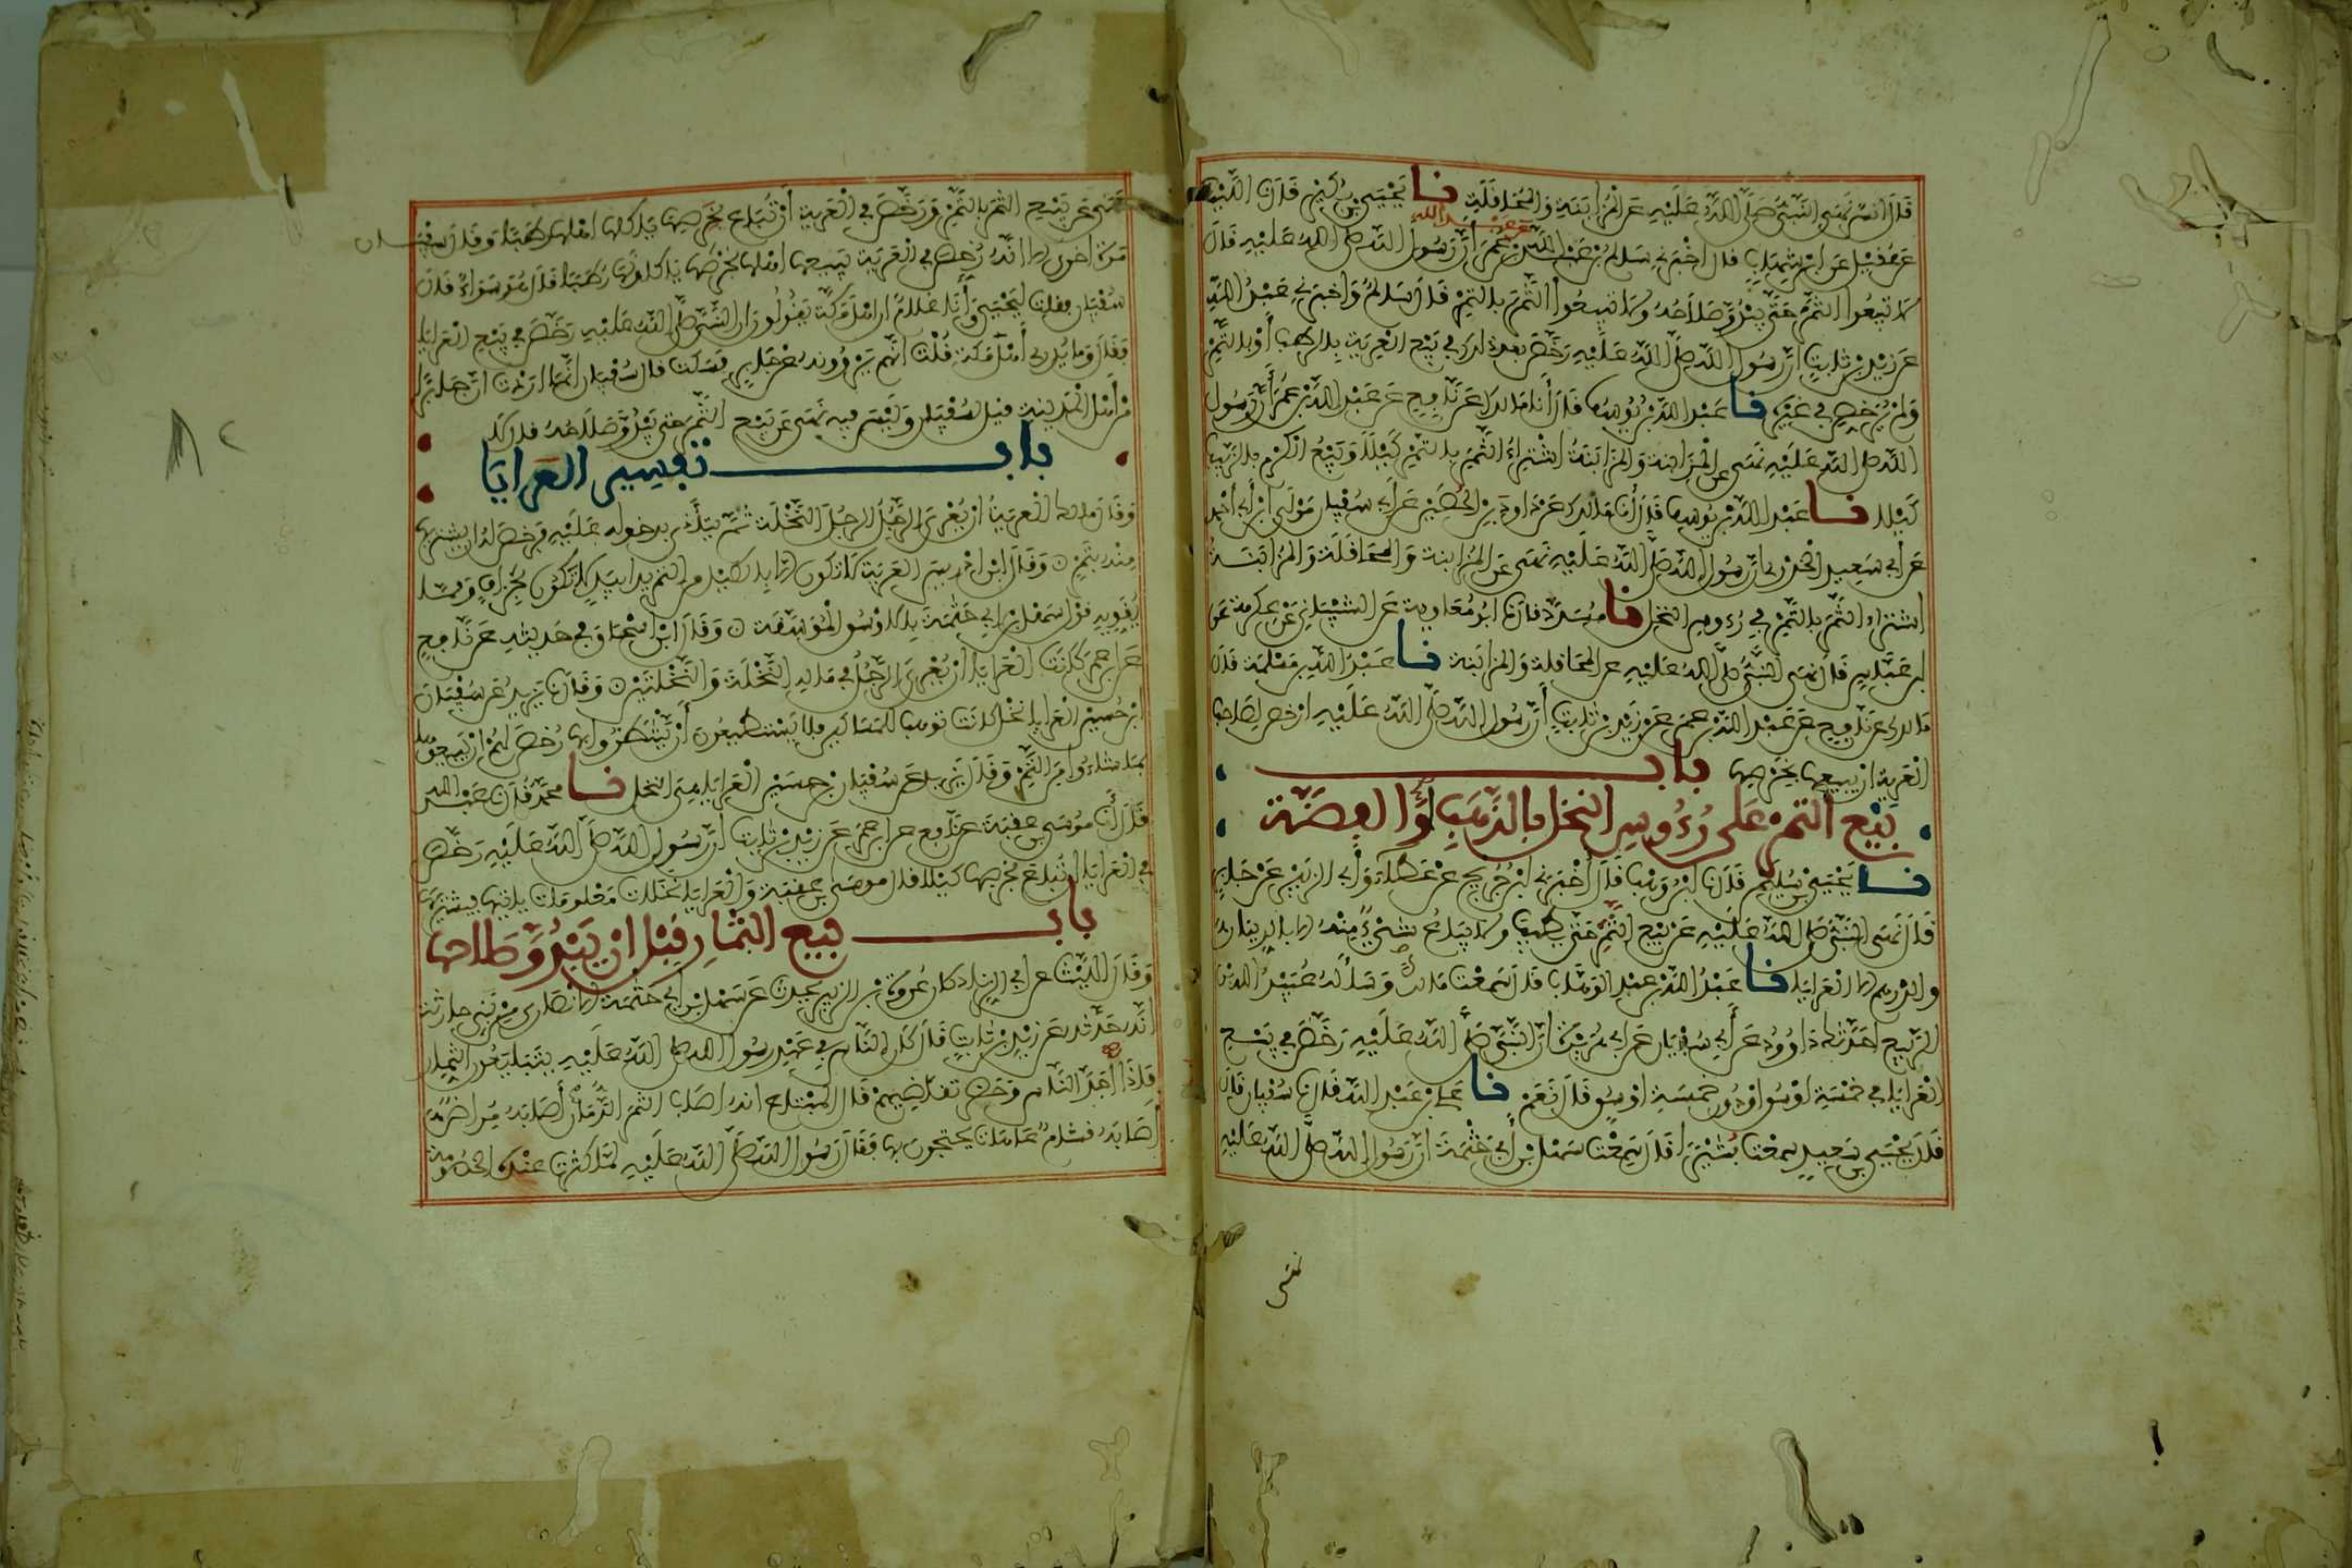 قال أنس نهى النبي صلى الله عليه عن المزابنة والمحاقلة نا يحيى بن بكير قال نا الليث
عن عقيل عن ابن شهاب قال أخبرني سالم بن عبد الله عن عبد الله بن عمر أن رسول الله صلى الله عليه قال
لا تبيعوا الثمر حتى يبدو صلاحه ولا تبيعوا الثمر بالتمر قال سالم وأخبرني عبد الله
عن زيد بن ثابت أن رسول الله صلى الله عليه رخص بعد ذلك في بيع العرية بالرطب أو بالتمر
ولم يرخص في غيره نا عبد الله بن يوسف قال أنا مالك عن نافع عن عبد الله بن عمر أن رسول
الله صلى الله عليه نهى عن المزابنة والمزابنة اشتراء الثمر بالتمر كيلا وبيع الكرم بالزبيب
كيلا نا عبد الله بن يوسف قال أنا مالك عن داود بن الحصين عن أبي سفيان مولى ابن أبي أحمد
عن أبي سعيد الخدري أن رسول الله صلى الله عليه نهى عن المزابنة والمحاقلة والمزابنة
اشتراء الثمر بالتمر في رءوس النخل نا مسدد قال نا أبو معاوية عن الشيباني عن عكرمة عن
ابن عباس قال نهى النبي صلى الله عليه عن المحاقلة والمزابنة نا عبد الله بن مسلمة قال نا
مالك عن نافع عن عبد الله بن عمر عن زيد بن ثابت أن رسول الله صلى الله عليه أرخص لصاحب
العرية أن يبيعها بخرصها باب
بيع الثمر على رءوس النخل بالذهب أو الفضة
نا يحيى بن سليمان قال نا ابن وهب قال أخبرني ابن جريج عن عطاء وأبي الزبير عن جابر
قال نهى النبي صلى الله عليه عن بيع الثمر حتى يطيب ولا يباع شيء منه إلا بالدينار
والدرهم إلا العرايا نا عبد الله بن عبد الوهاب قال سمعت مالكا وسأله عبيد الله بن
الربيع أحدثك داوود عن أبي سفيان عن أبي هريرة أن النبي صلى الله عليه رخص في بيع
العرايا في خمسة أوسق أو دون خمسة أوسق قال نعم نا علي بن عبد الله قال نا سفيان قال
قال يحيى بن سعيد سمعت بشيرا قال سمعت سهل بن أبي حثمة أن رسول الله صلى الله عليه
نهى
نهى عن بيع الثمر بالتمر ورخص في العرية أن تباع بخرصها يأكلها أهلها رطبا وقال سفيان
مرة أخرى إلا أنه رخص في العرية يبيعها أهلها بخرصها يأكلونها رطبا قال هو سواء قال
سفيان فقلت ليحيى وأنا غلام إن أهل مكة يقولون إن النبي صلى الله عليه رخص في بيع العرايا
فقال وما يدري أهل مكة قلت إنهم يروونه عن جابر فسكت قال سفيان إنما أردت أن جابرا
من أهل المدينة قيل لسفيان وليس فيه نهى عن بيع الثمر حتى يبدو صلاحه قال لا
باب تفسير العرايا
وقال مالك العرية أن يعري الرجل الرجل النخلة ثم يتأذى بدخوله عليه فرخص له أن يشتريها
منه بتمر وقال ابن إدريس العرية لا تكون إلا بالكيل من التمر يدا بيد لا تكون بجزاف ومما
يقويه قول سهل بن أبي حثمة بالأوسق الموسقة وقال ابن إسحاق في حديثه عن نافع
عن ابن عمر كانت العرايا أن يعري الرجل في ماله النخلة والنخلتين وقال يزيد عن سفيان
ابن حسين العرايا نخل كانت توهب للمساكين فلا يستطيعون أن ينتظروا بها رخص لهم أن يبيعوها
بما شاءوا من التمر وقال يزيد عن سفيان بن حسين العرايا من النخل نا محمد قال نا عبد الله
قال أنا موسى بن عقبة عن نافع عن ابن عمر عن زيد بن ثابت أن رسول الله صلى الله عليه رخص
في العرايا أن تباع بخرصها كيلا قال موسى بن عقبة والعرايا نخلات معلومات يأتيها فيشتريها
باب بيع الثمار قبل أن يبدو صلاحها
وقال الليث عن أبي الزناد كان عروة بن الزبير يحدث عن سهل بن أبي حثمة الأنصاري من بني حارثة
أنه حدثه عن زيد بن ثابت قال كان الناس في عهد رسول الله صلى الله عليه يتبايعون الثمار
فإذا أجد الناس وحضر تقاضيهم قال المبتاع إنه أصاب الثمر الدمان أصابه مراض
أصابه قشام عاهات يحتجون بها فقال رسول الله صلى الله عليه لما كثرت عنده الخصومة